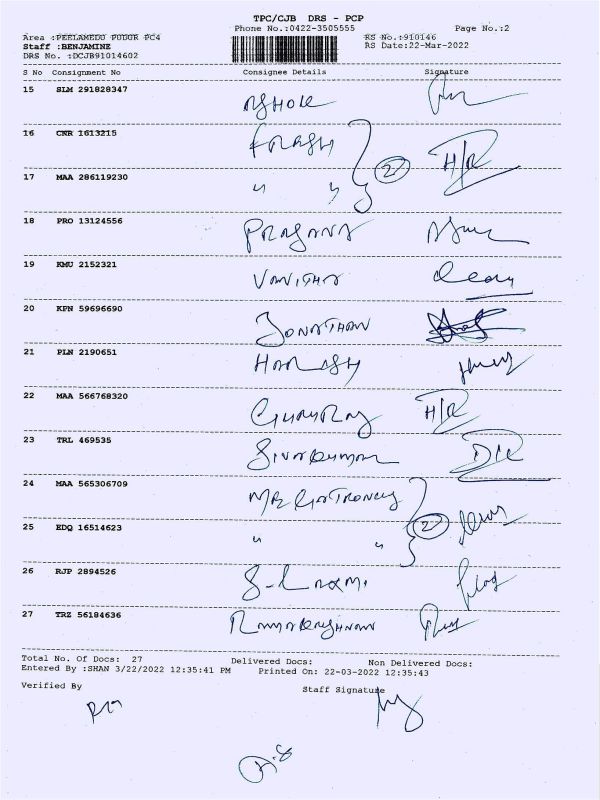 TPC/CJB DRS - PCP
Phone No.:0422-3505555 Page No.:2
Area :PEELAMEDU PUDUR PC4 RS No.:910146
Staff :BENJAMINE RS Date:22-Mar-2022
DRS No. :DCJB91014602
S No Consignment No Consignee Details Signature
15 SLM 291828347 ASHOK
16 CNR 1613215 2 H/R
17 MAA 286119230 " "
18 PRO 13124556 PRASANNA
19 KMU 2152321 VANITHA
20 KPN 59696690 JONATHAN
21 PLN 2190651 HARISH
22 MAA 566768320 H/R
23 TRL 469535 SIVAKUMAR
24 MAA 565306709 2
25 EDQ 16514623 " "
26 RJP 2894526 S. LAXMI
27 TRZ 56184636 RAMAKRISHNAN
Total No. Of Docs: 27 Delivered Docs: Non Delivered Docs:
Entered By :SHAN 3/22/2022 12:35:41 PM Printed On: 22-03-2022 12:35:43
Verified By Staff Signature